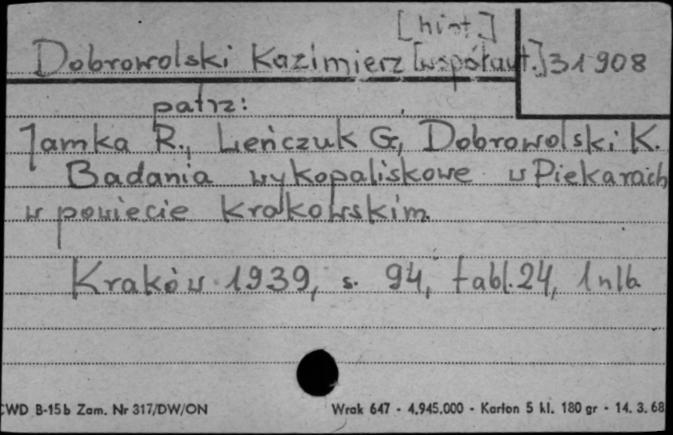 [hist.]
Dobrowolski Kazimierz [współaut.] 31908
patrz:
Jamka R., Leńczuk G., Dobrowolski K.
Badania wykopaliskowe w Piekarach
w powiecie krakowskim.
Kraków 1939, s. 94, tabl. 24, 1 nlb.
CWD B-15b Zam. Nr 317/DW/ON Wrak 647 - 4.945.000 - Karton 5 kl. 180 gr - 14. 3. 68